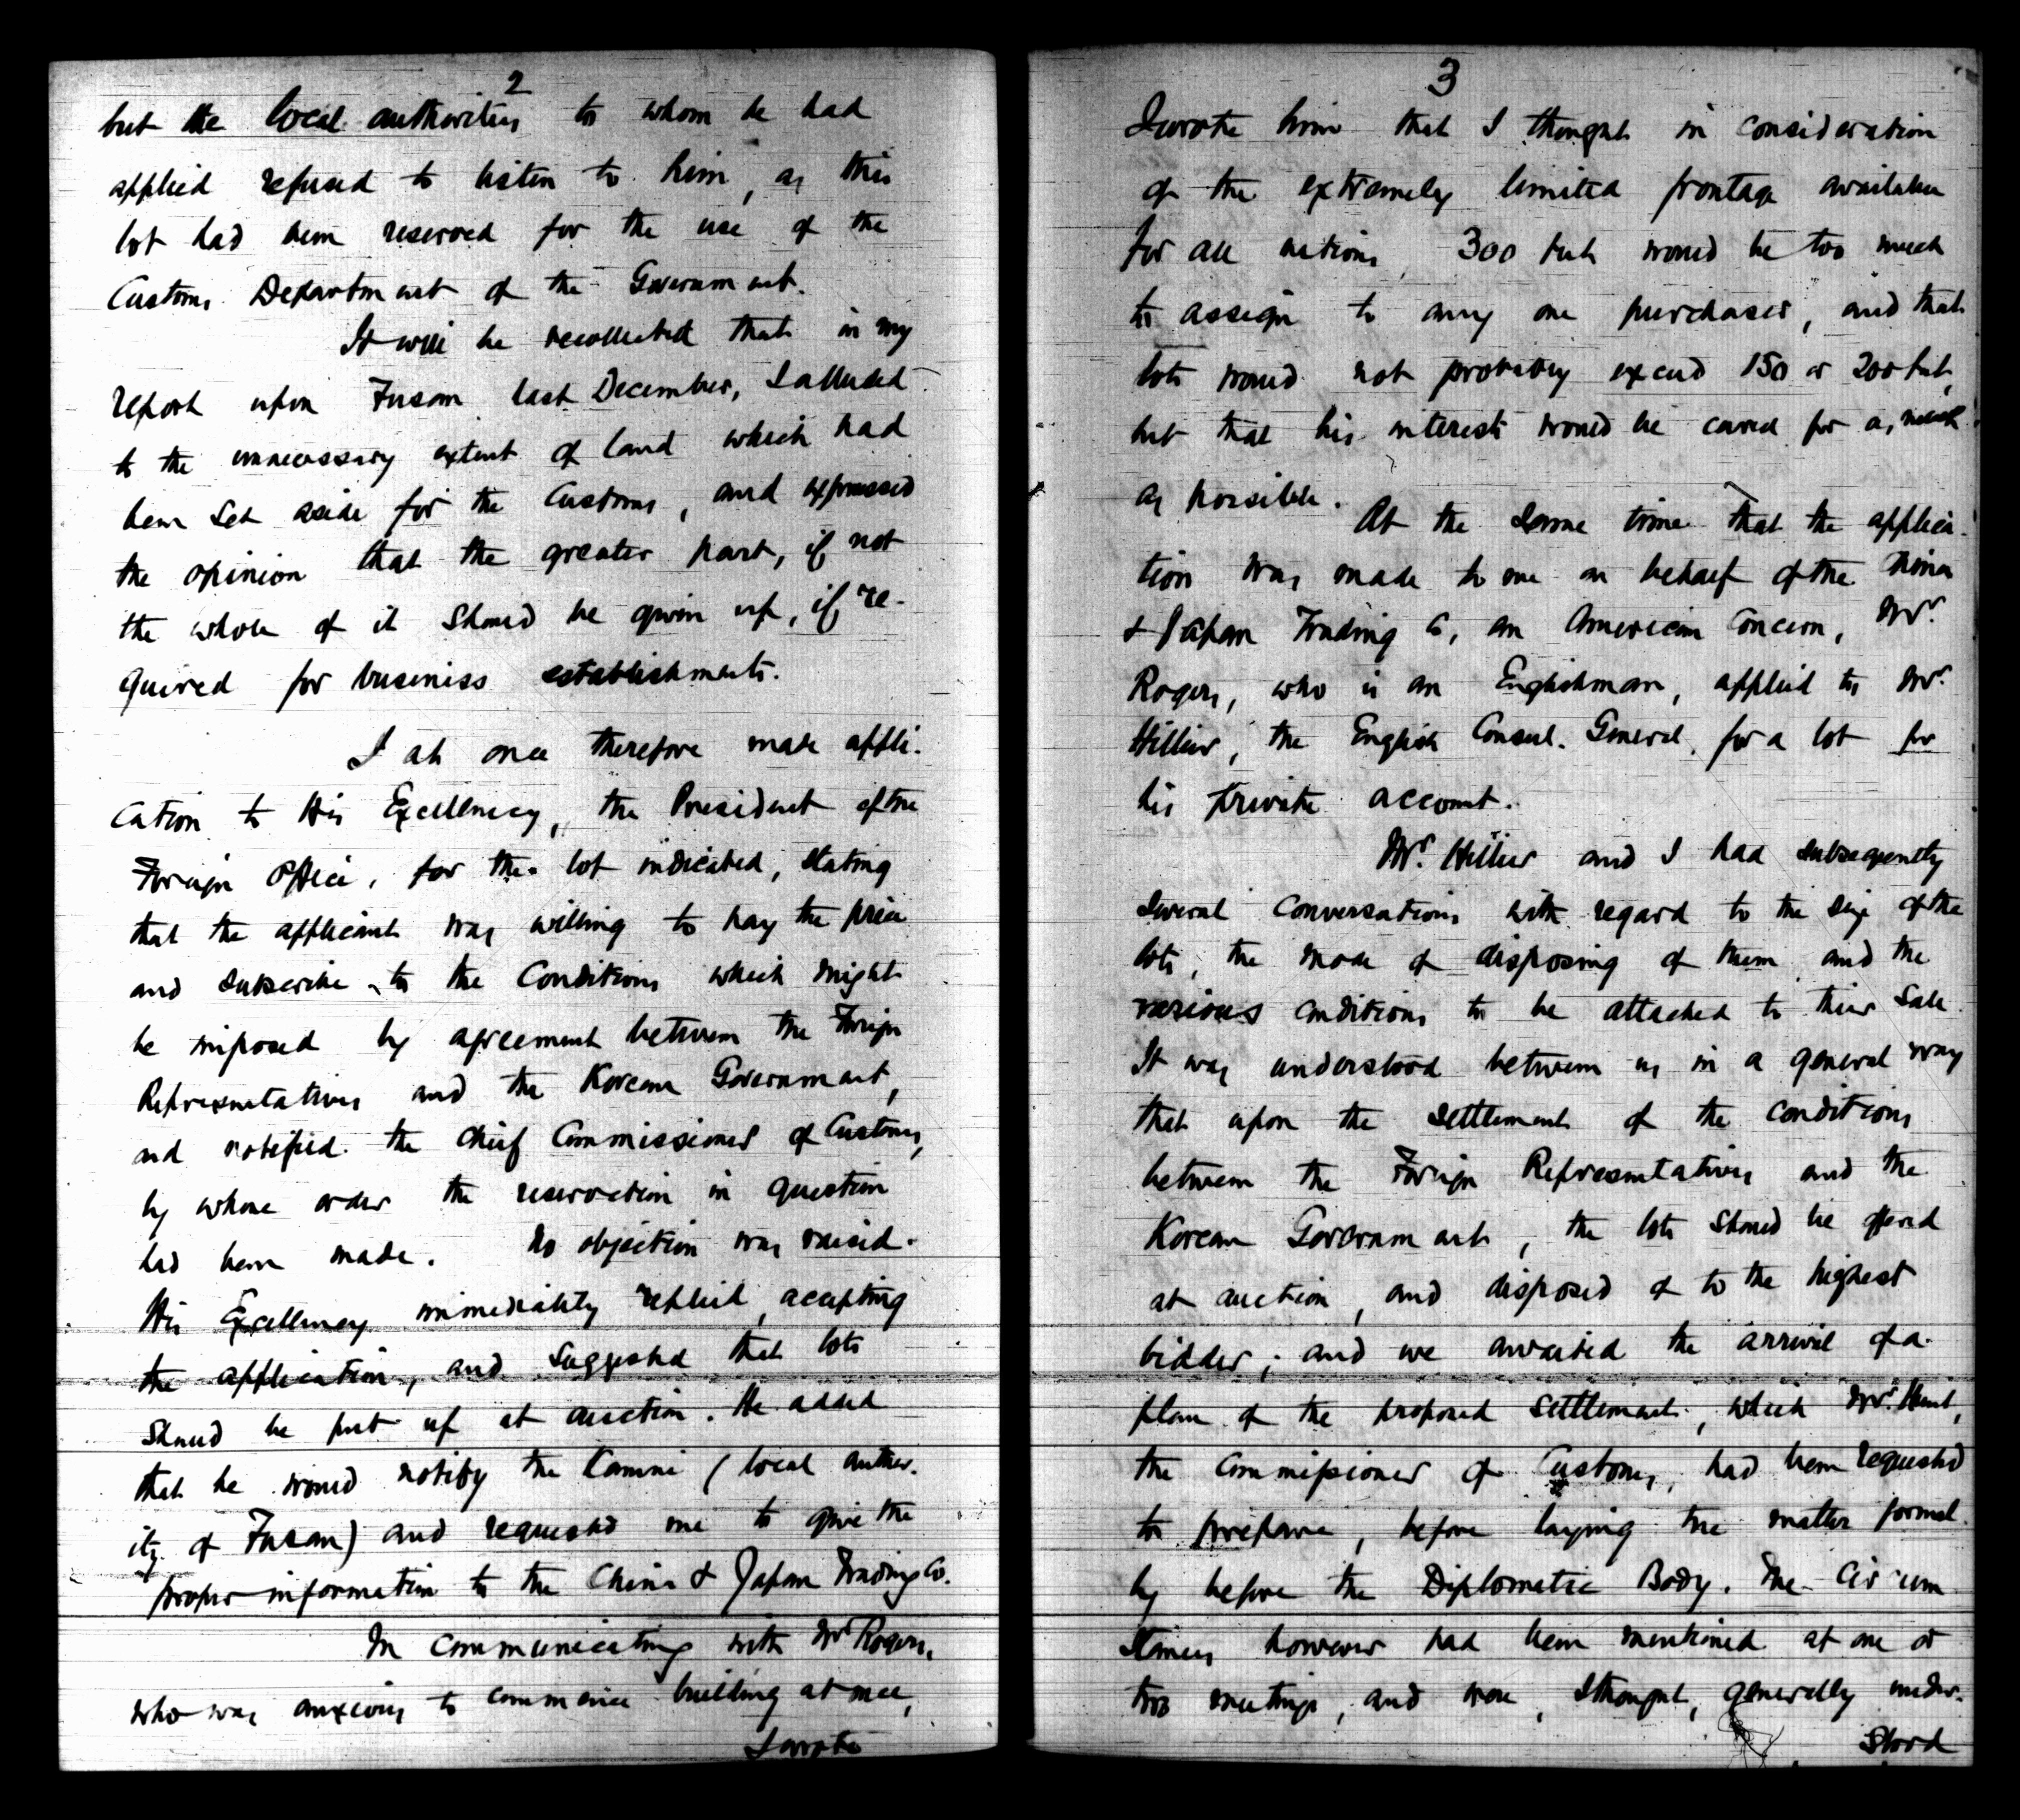 2
but the local authorities to whom he had
applied refused to listen to him, as this
lot had been reserved for the use of the
Customs Department of the Government.
It will be recollected that in my
report upon Fusan last December, I alluded
to the unnecessary extent of land which had
been set aside for the Customs, and expressed
the opinion that the greater part, if not
the whole of it should be given up, if re-
quired for business establishments.
I at once therefore made appli-
cation to His Excellency, the President of the
Foreign Office, for the lot indicated, stating
that the applicant was willing to pay the price
and subscribe to the Conditions which might
be imposed by agreement between the Foreign
Representatives and the Korean Government,
and notified the Chief Commissioner of Customs,
by whose order the reservation in question
had been made. No objection was raised.
His Excellency immediately replied, accepting
the application, and suggested that lots
should be put up at auction. He added
that he would notify the Kamni (local author-
ity of Fusan) and requested me to give the
proper information to the China & Japan Trading Co.
In communicating with Mr Rogers,
who was anxious to commence building at once,
I wrote
3
I wrote him that I thought in consideration
of the extremely limited frontage available
for all nations, 300 feet would be too much
to assign to any one purchaser, and that
lots would not probably exceed 150 or 200 feet,
but that his interests would be cared for as much
as possible.
At the same time that the applica-
tion was made to me on behalf of the China
& Japan Trading Co, an American Concern, Mr.
Rogers, who is an Englishman, applied to Mr.
Hillier, the English Consul-General, for a lot for
his private account.
Mr. Hillier and I had subsequently
several conversations with regard to the size of the
lots, the mode of disposing of them and the
various conditions to be attached to their sale.
It was understood between us in a general way
that upon the settlement of the conditions
between the Foreign Representatives and the
Korean Government, the lots should be offered
at auction, and disposed of to the highest
bidder; and we awaited the arrival of a
plan of the proposed settlement, which Mr. Hunt,
the Commissioner of Customs, had been requested
to prepare, before laying the matter formal-
ly before the Diplomatic Body. The circum-
stances however had been mentioned at one or
two meetings, and were, I thought, generally under-
stood